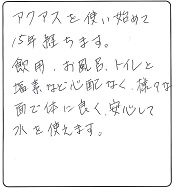 アクアスを使い始めて
15年経ちます。
飲用、お風呂、トイレと
塩素など心配なく、様々な
面で体に良く、安心して
水を使えます。